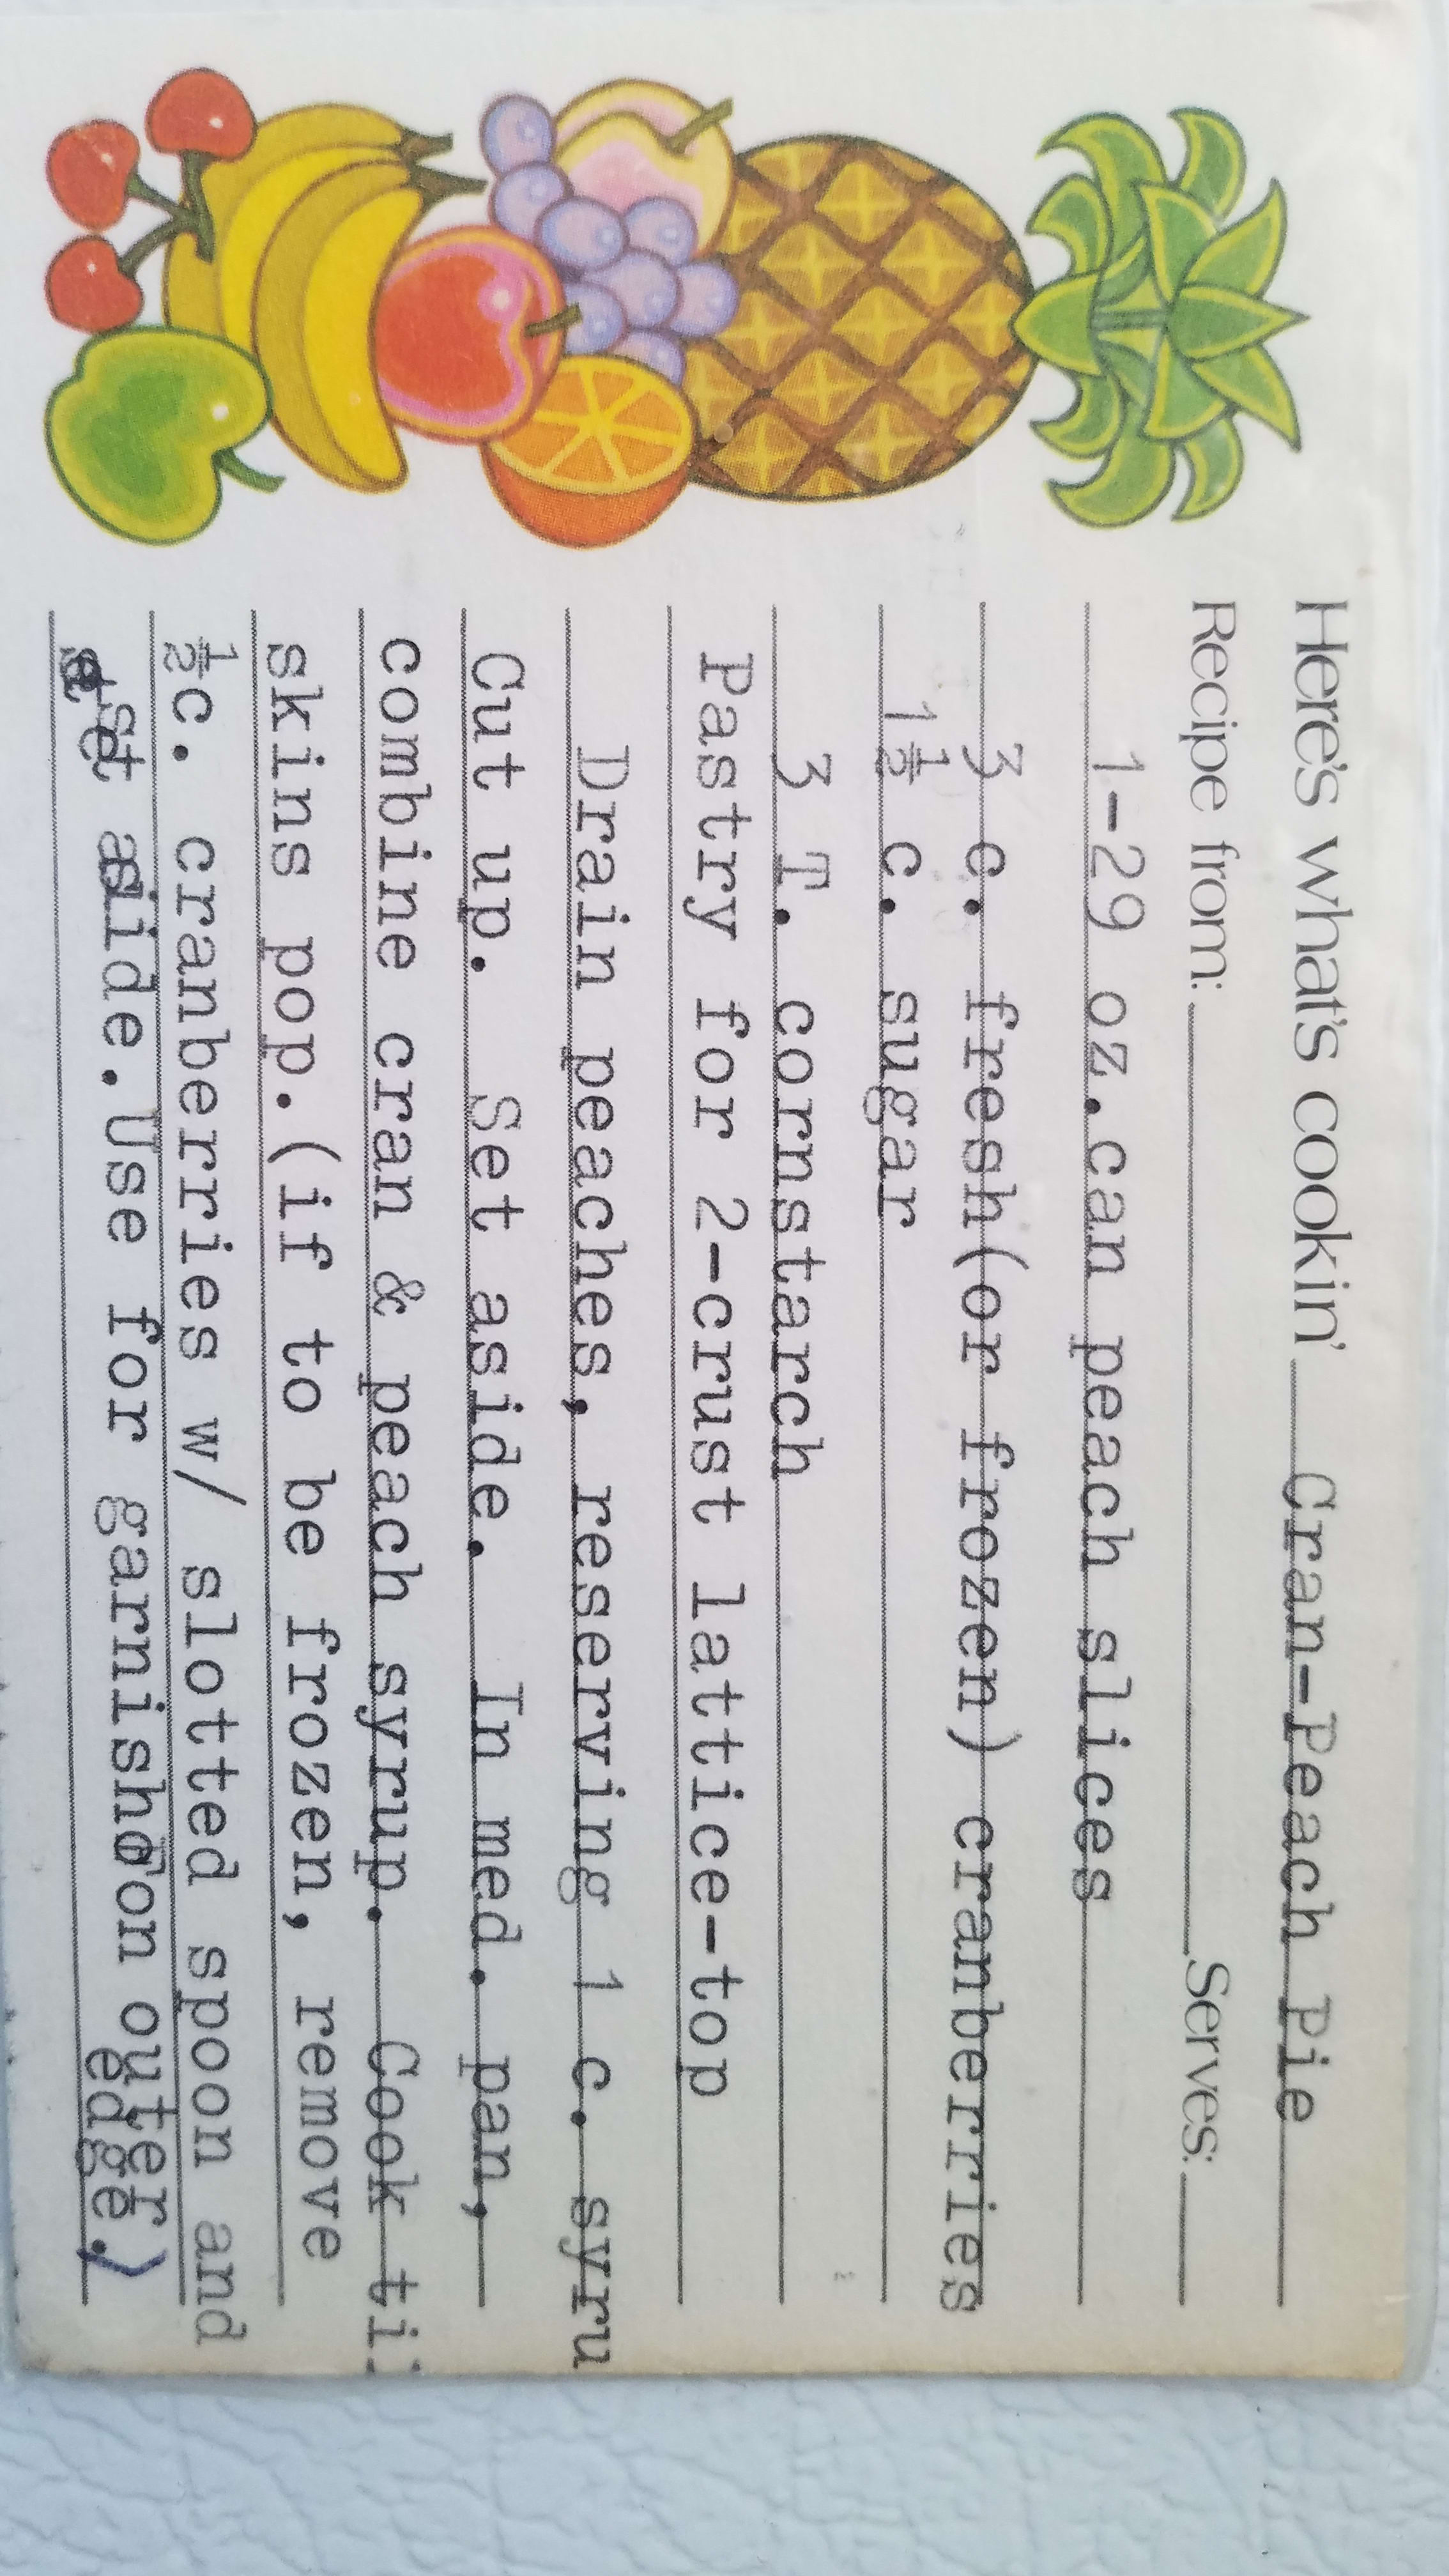 Here's what's cookin' Cran-Peach Pie
Recipe from: Serves:
1-29 oz.can peach slices
3 c. fresh(or frozen) cranberries
1½ c. sugar
3 T. cornstarch
Pastry for 2-crust lattice-top
Drain peaches, reserving 1 c. syru
Cut up. Set aside. In med. pan,
combine cran & peach syrup. Cook til
skins pop.(if to be frozen, remove
½c. cranberries w/ slotted spoon and
set aside.Use for garnish on outer
edge.)